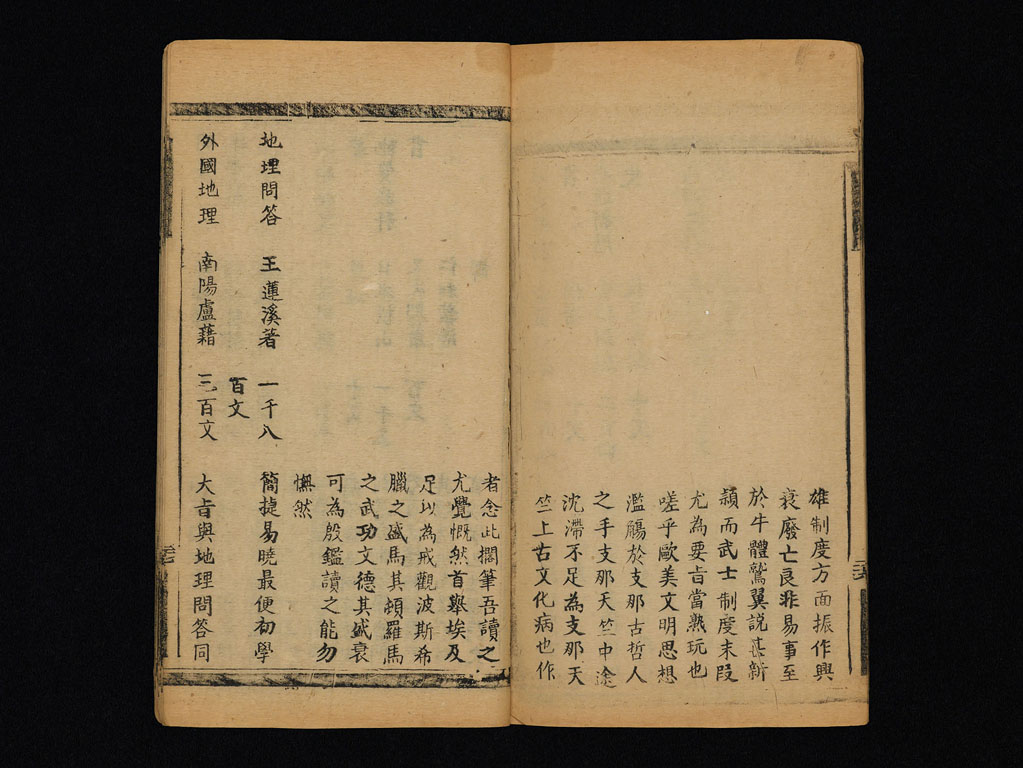 雄制度方面振作興
衰廢亡良非易事至
於牛體鷲翼説甚新
穎而武士制度末段
尤為要旨當熟玩也
嗟乎歐美文明思想
濫觴於支那古哲人
之手支那天竺中途
沈滯不足為支那天
竺上古文化病也作
者念此擱筆吾讀之
尤覺慨然首舉埃及
足以為戒觀波斯希
臘之盛馬其頓羅馬
之武功文德其盛衰
可為殷鑑讀之能勿
憮然
地理問答 王蓮溪著 一千八
百文
簡捷易曉最便初學
外國地理 南陽盧藉 三百文 大旨與地理問答同